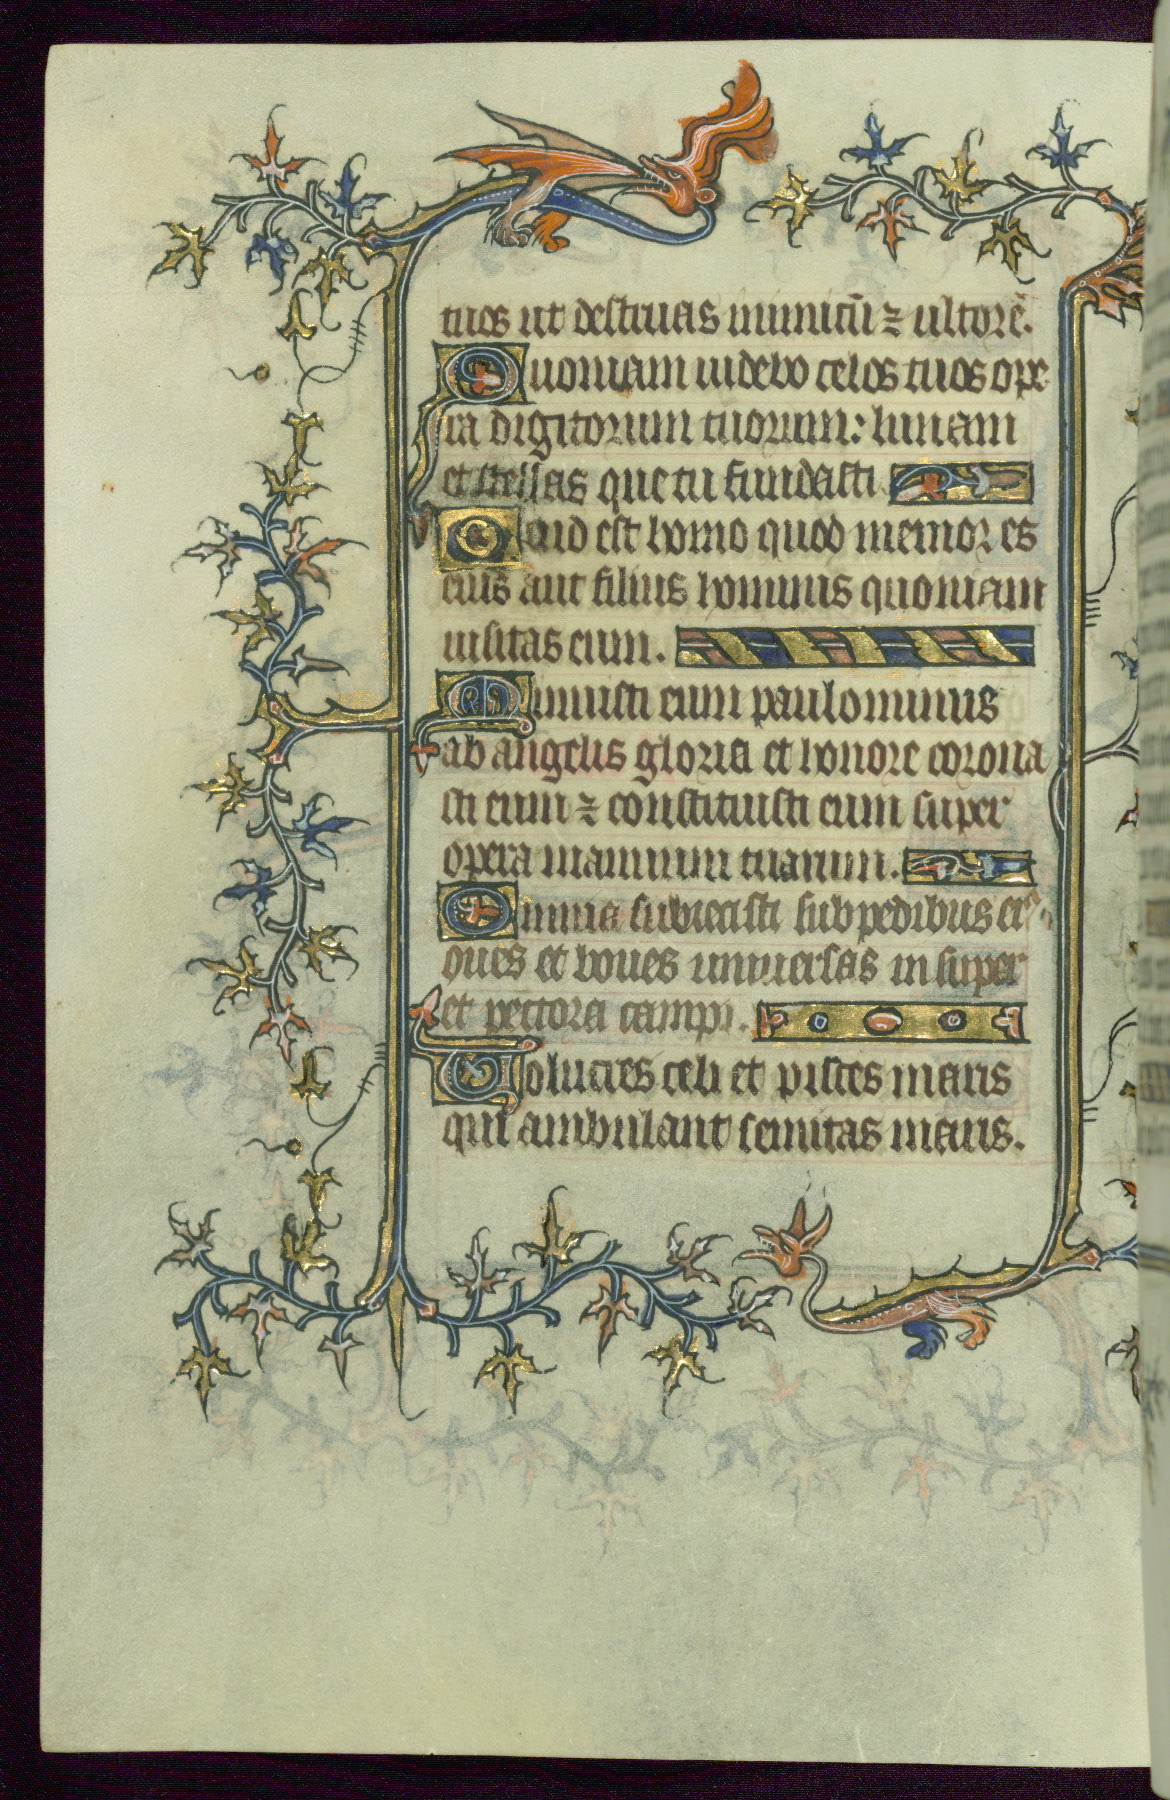 tuos ut destruas inimicū ⁊ ultorē.
Quoniam uidebo celos tuos ope
ra digitorum tuorum: lunam
et stellas que tu fundasti
Quid est homo quod memor es
eius aut filius hominis quoniam
uisitas eum.
Minuisti eum paulominus
ab angelis gloria et honore corona
sti eum ⁊ constituisti eum super
opera manuum tuarum.
Omnia subiecisti sub pedibus ei
oues et boues uniuersas insuper
et pectora campi.
Volucres celi et pisces maris
qui ambulant semitas maris.